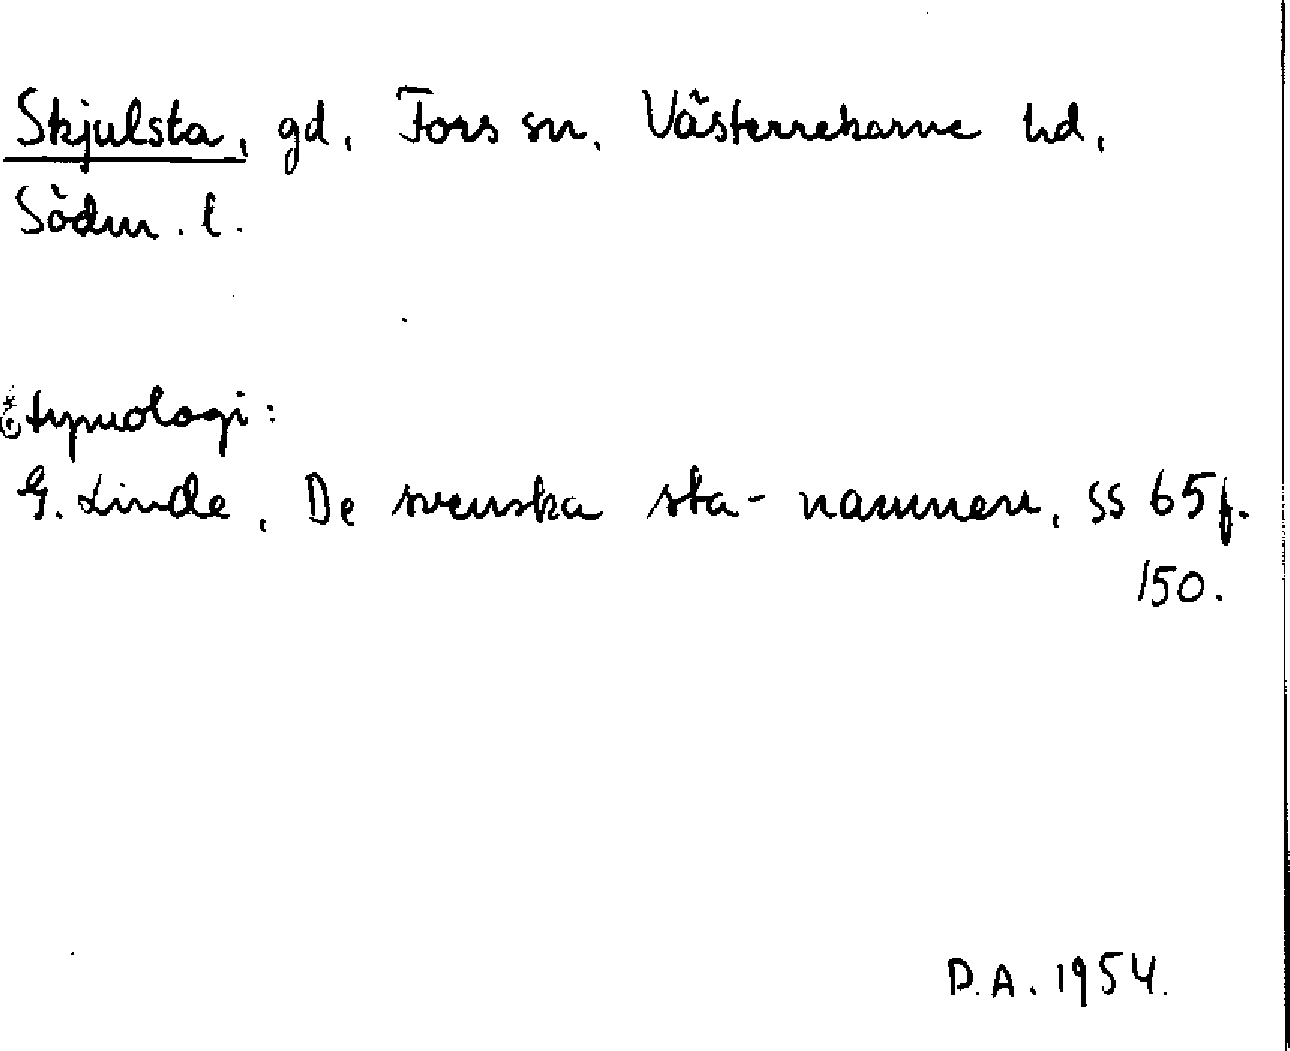 Skjulsta, gd, Fors sn, Västerrekarne hd,
Södm. l.
etymologi:
G. Linde, De svenska sta-namnen, ss 65f.
150.
D.A. 1954.